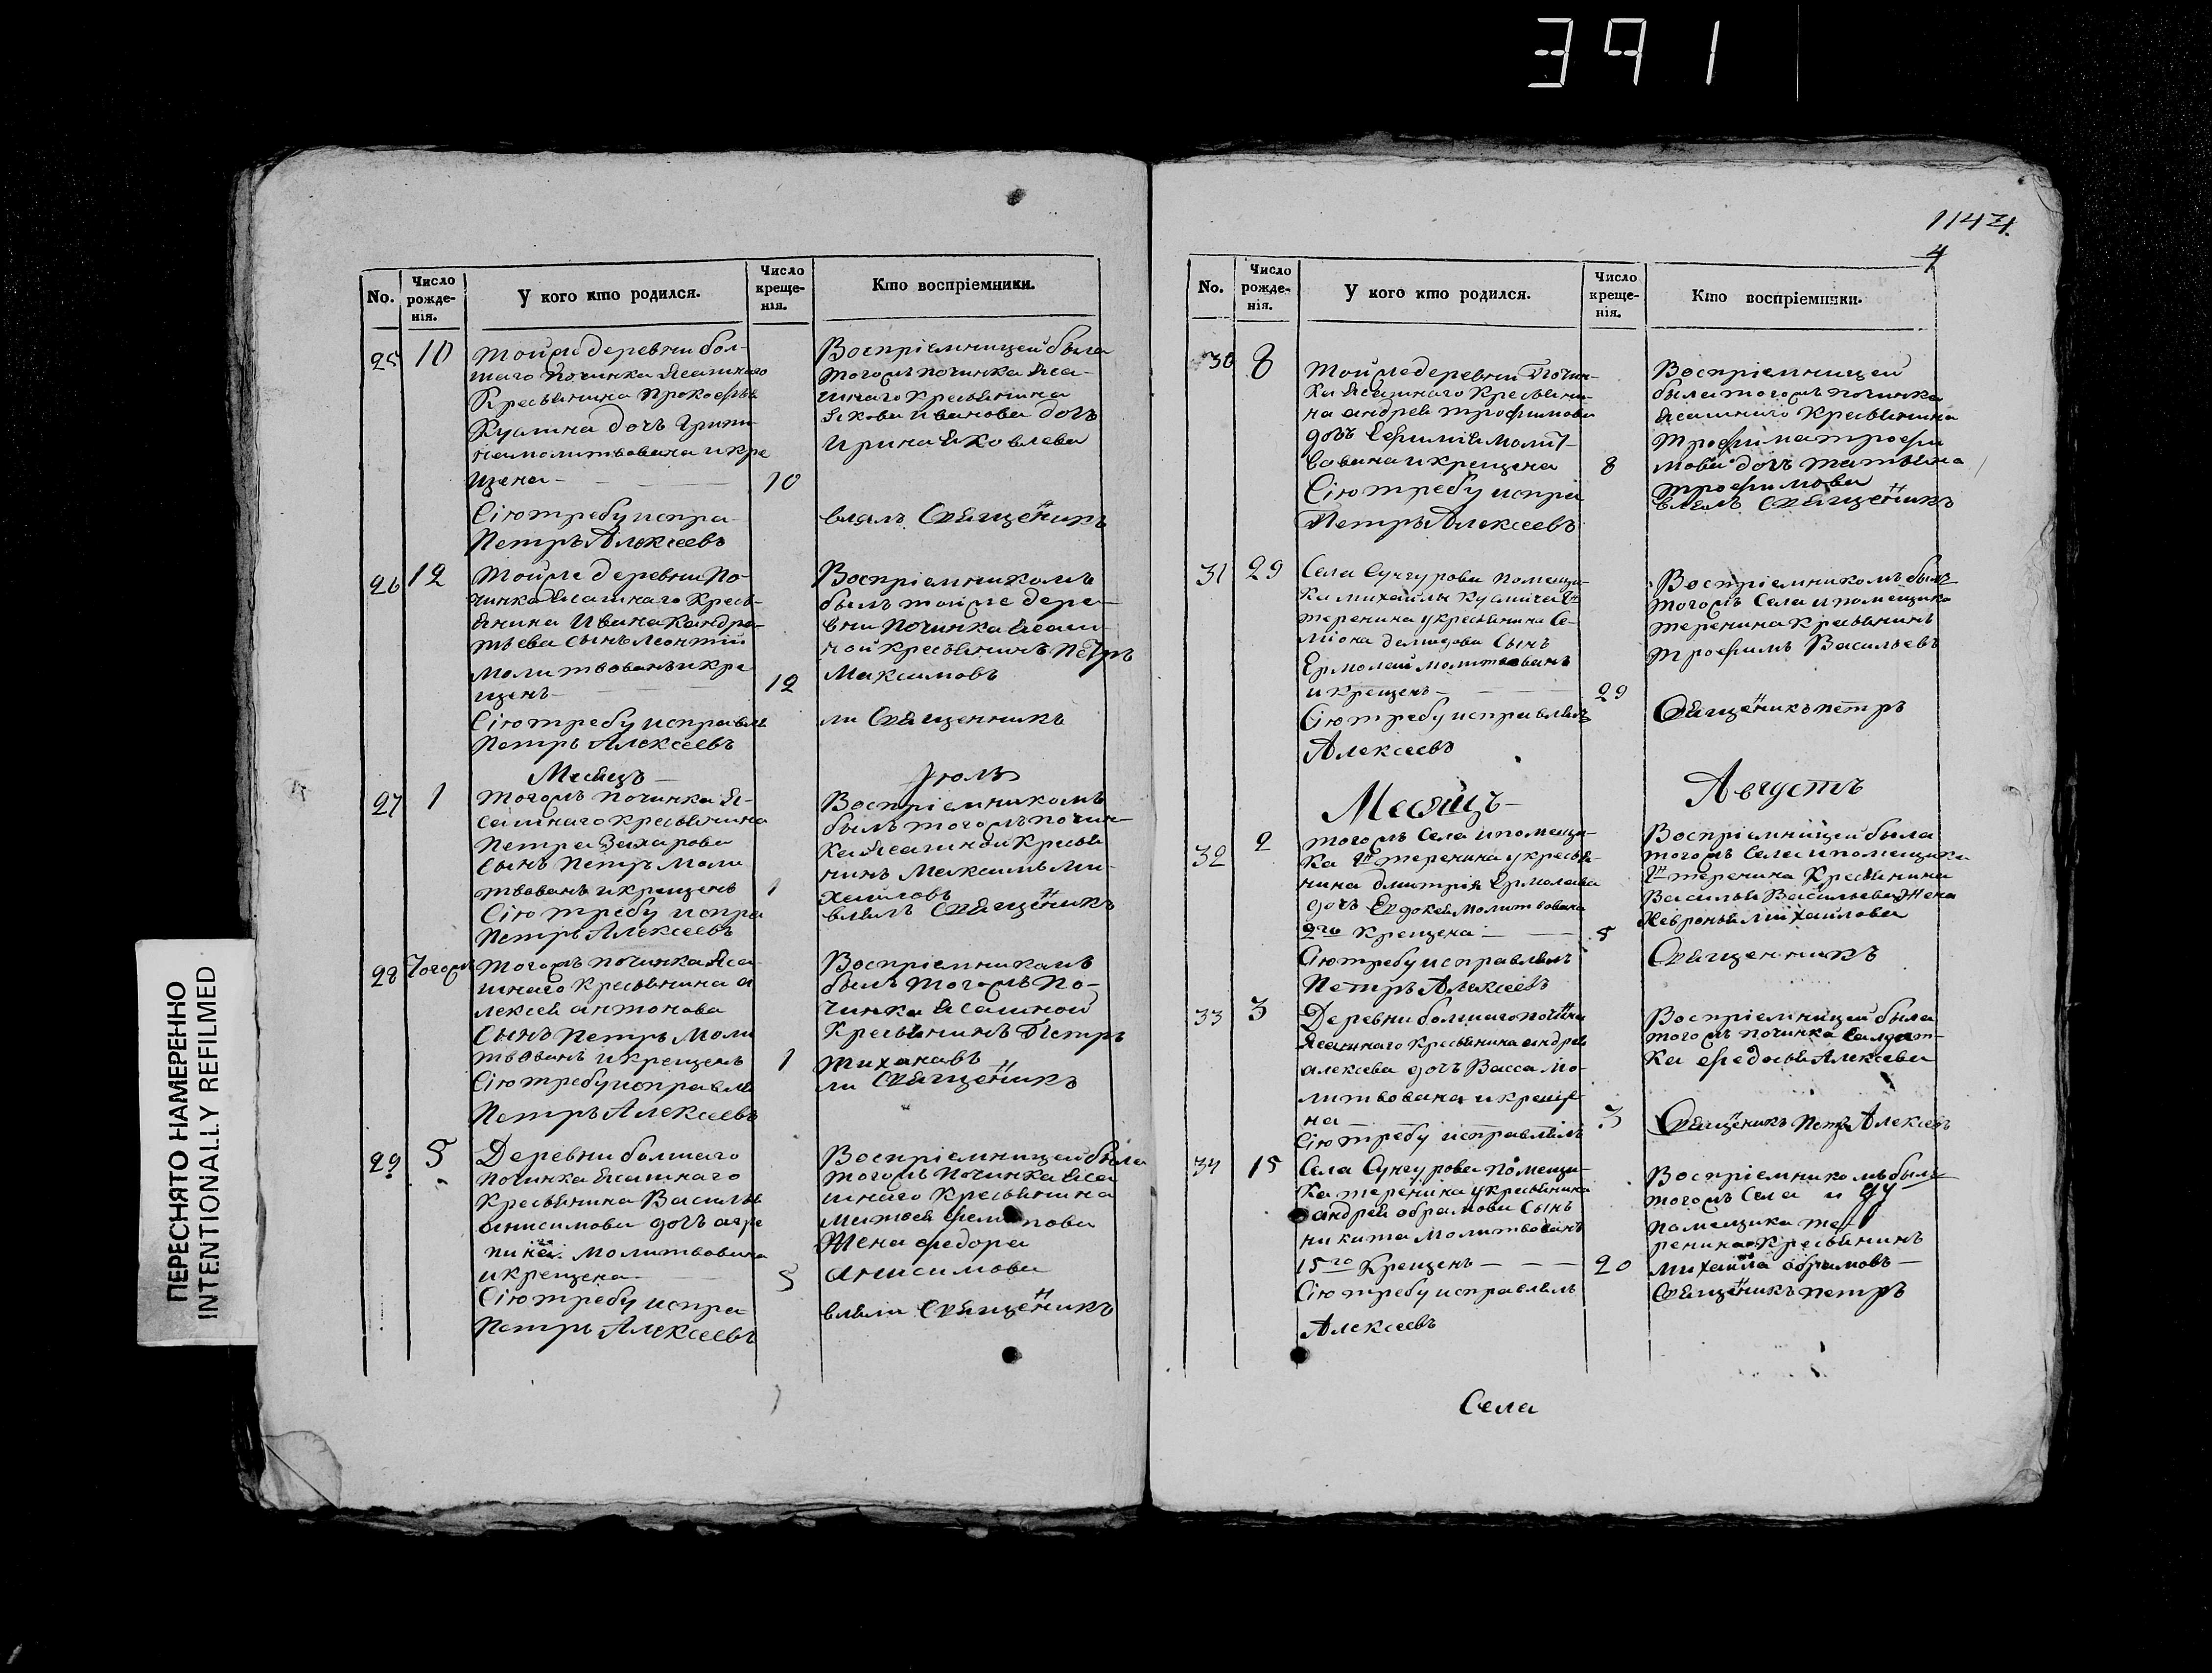 391
ПЕРЕСНЯТО НАМЕРЕННО
INTENTIONALLY REFILMED
No.
Число рожде-нія.
У кого кто родился.
Число креще-нія.
Кто воспріемники.
25
10
тойже деревни бол-
шаго Починка Ясашнаго
Крестьянина Прокофья
Кузмина дочь
молитвована и кре
щена
10
Сію требу испра
Петръ Алексеевъ
Воспріемницей была
того жъ починка Яса-
шнаго крестьянина
Якова Иванова дочь
Ирина Яковлева
влялъ Священникъ
26
12
Тойже деревни По-
чинка Ясашнаго Кресть-
янина Ивана Кандра-
тьева сынъ Леонтий
молитвованъ и кре
щенъ
12
Сію требу исправля
Петръ Алексеевъ
Воспріемникомъ
былъ тойже дере-
вни Починка Ясаш
ной крестьянинъ Петръ
Максимовъ
ли Священникъ
Месяцъ
Іюль
27
1
Тогожъ починка Я-
сашнаго крестьянина
Петра Захарова
сынъ Петръ моли
твованъ и крещенъ
1
Сію требу испра
Петръ Алексеевъ
Воспріемникомъ
былъ тогожъ почин-
ка Ясашной крестья
нинъ Максимъ Ми-
хайловъ
влялъ Священникъ
28
Тогожъ
Тогожъ починка Яса-
шнаго крестьянина а
лексея антонова
сынъ Петръ моли
твованъ и крещенъ
1
Сію требу исправля
Петръ Алексеевъ
Воспріемникомъ
былъ тогожъ По-
чинка Ясашной
Крестьянинъ Петръ
Тихановъ
ли Священникъ
29
5
Деревни болшаго
починка Ясашнаго
Крестьянина Василья
анисимова дочь агре
пина молитвована
и крещена
5
Сію требу испра-
Петръ Алексеевъ
Воспріемницей была
тогожъ Починка Яса
шнаго крестьянина
Жена федора
Анисимова
вляли Священникъ
1147
4
No.
Число рожде-нія.
У кого кто родился.
Число креще-нія.
Кто воспріемники.
30
8
Тойжедеревни Почин-
ка Ясашнаго Крестьяни-
на андрея трофимова
дочь Ефимія молит-
вована и крещена
8
Сію требу испра
Петръ Алексеевъ
Воспріемницей
была тогожъ починка
Ясашнаго Крестьянина
Трофима трофи
мова дочь татьяна
трофимова
влялъ Священникъ
31
29
Села Сунгурова помещи-
ка михайлы Кузмича
теренина у крестьянина Се-
миона демидова сынъ
Ермолай молитвованъ
и крещенъ
29
Сію требу исправлялъ
Алексеевъ
Воспріемникомъ былъ
тогожъ Села и помещика
теренина крестьянинъ
трофимъ Васильевъ
Священникъ петръ
Месяцъ
Августъ
32
2
тогожъ Села и помещи-
ка теренина у кресть-
янина дмитрія Ермолаева
дочь Евдокея молитвована
2го Крещена
5
Сію требу исправлялъ
Петръ Алексеевъ
Воспріемницей была
тогожъ Села и помещика
теренина Крестьянина
Василья Васильева Жена
Хевронья михайлова
Священникъ
33
3
Деревни болшаго починка
Ясашнаго крестьянина андрея
алексева дочь Васса мо-
литвована и креще
на
3
Сію требу исправлялъ
Воспріемницей была
тогожъ починка Салдат-
ка федосья Алексева
Священникъ Петръ Алексеевъ
34
15
Села Сунгурова помещи-
ка теренина у крестьянина
андрея абрамова Сынъ
никита молитвованъ
15го Крещенъ
20
Сію требу исправлялъ
Алексеевъ
Воспріемникомъ былъ
тогожъ Села и
помещика те-
ренина крестьянинъ
михаила абрамовъ
Священникъ петръ
Села